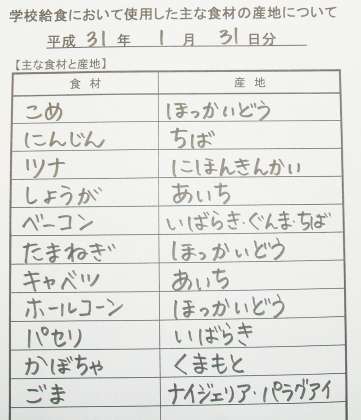 学校給食において使用した主な食材の産地について
平成 31 年 1 月 31 日分
【主な食材と産地】
食材 産地
こめ ほっかいどう
にんじん ちば
ツナ にほんきんかい
しょうが あいち
ベーコン いばらき・ぐんま・ちば
たまねぎ ほっかいどう
キャベツ あいち
ホールコーン ほっかいどう
パセリ いばらき
かぼちゃ くまもと
ごま ナイジェリア・パラグアイ